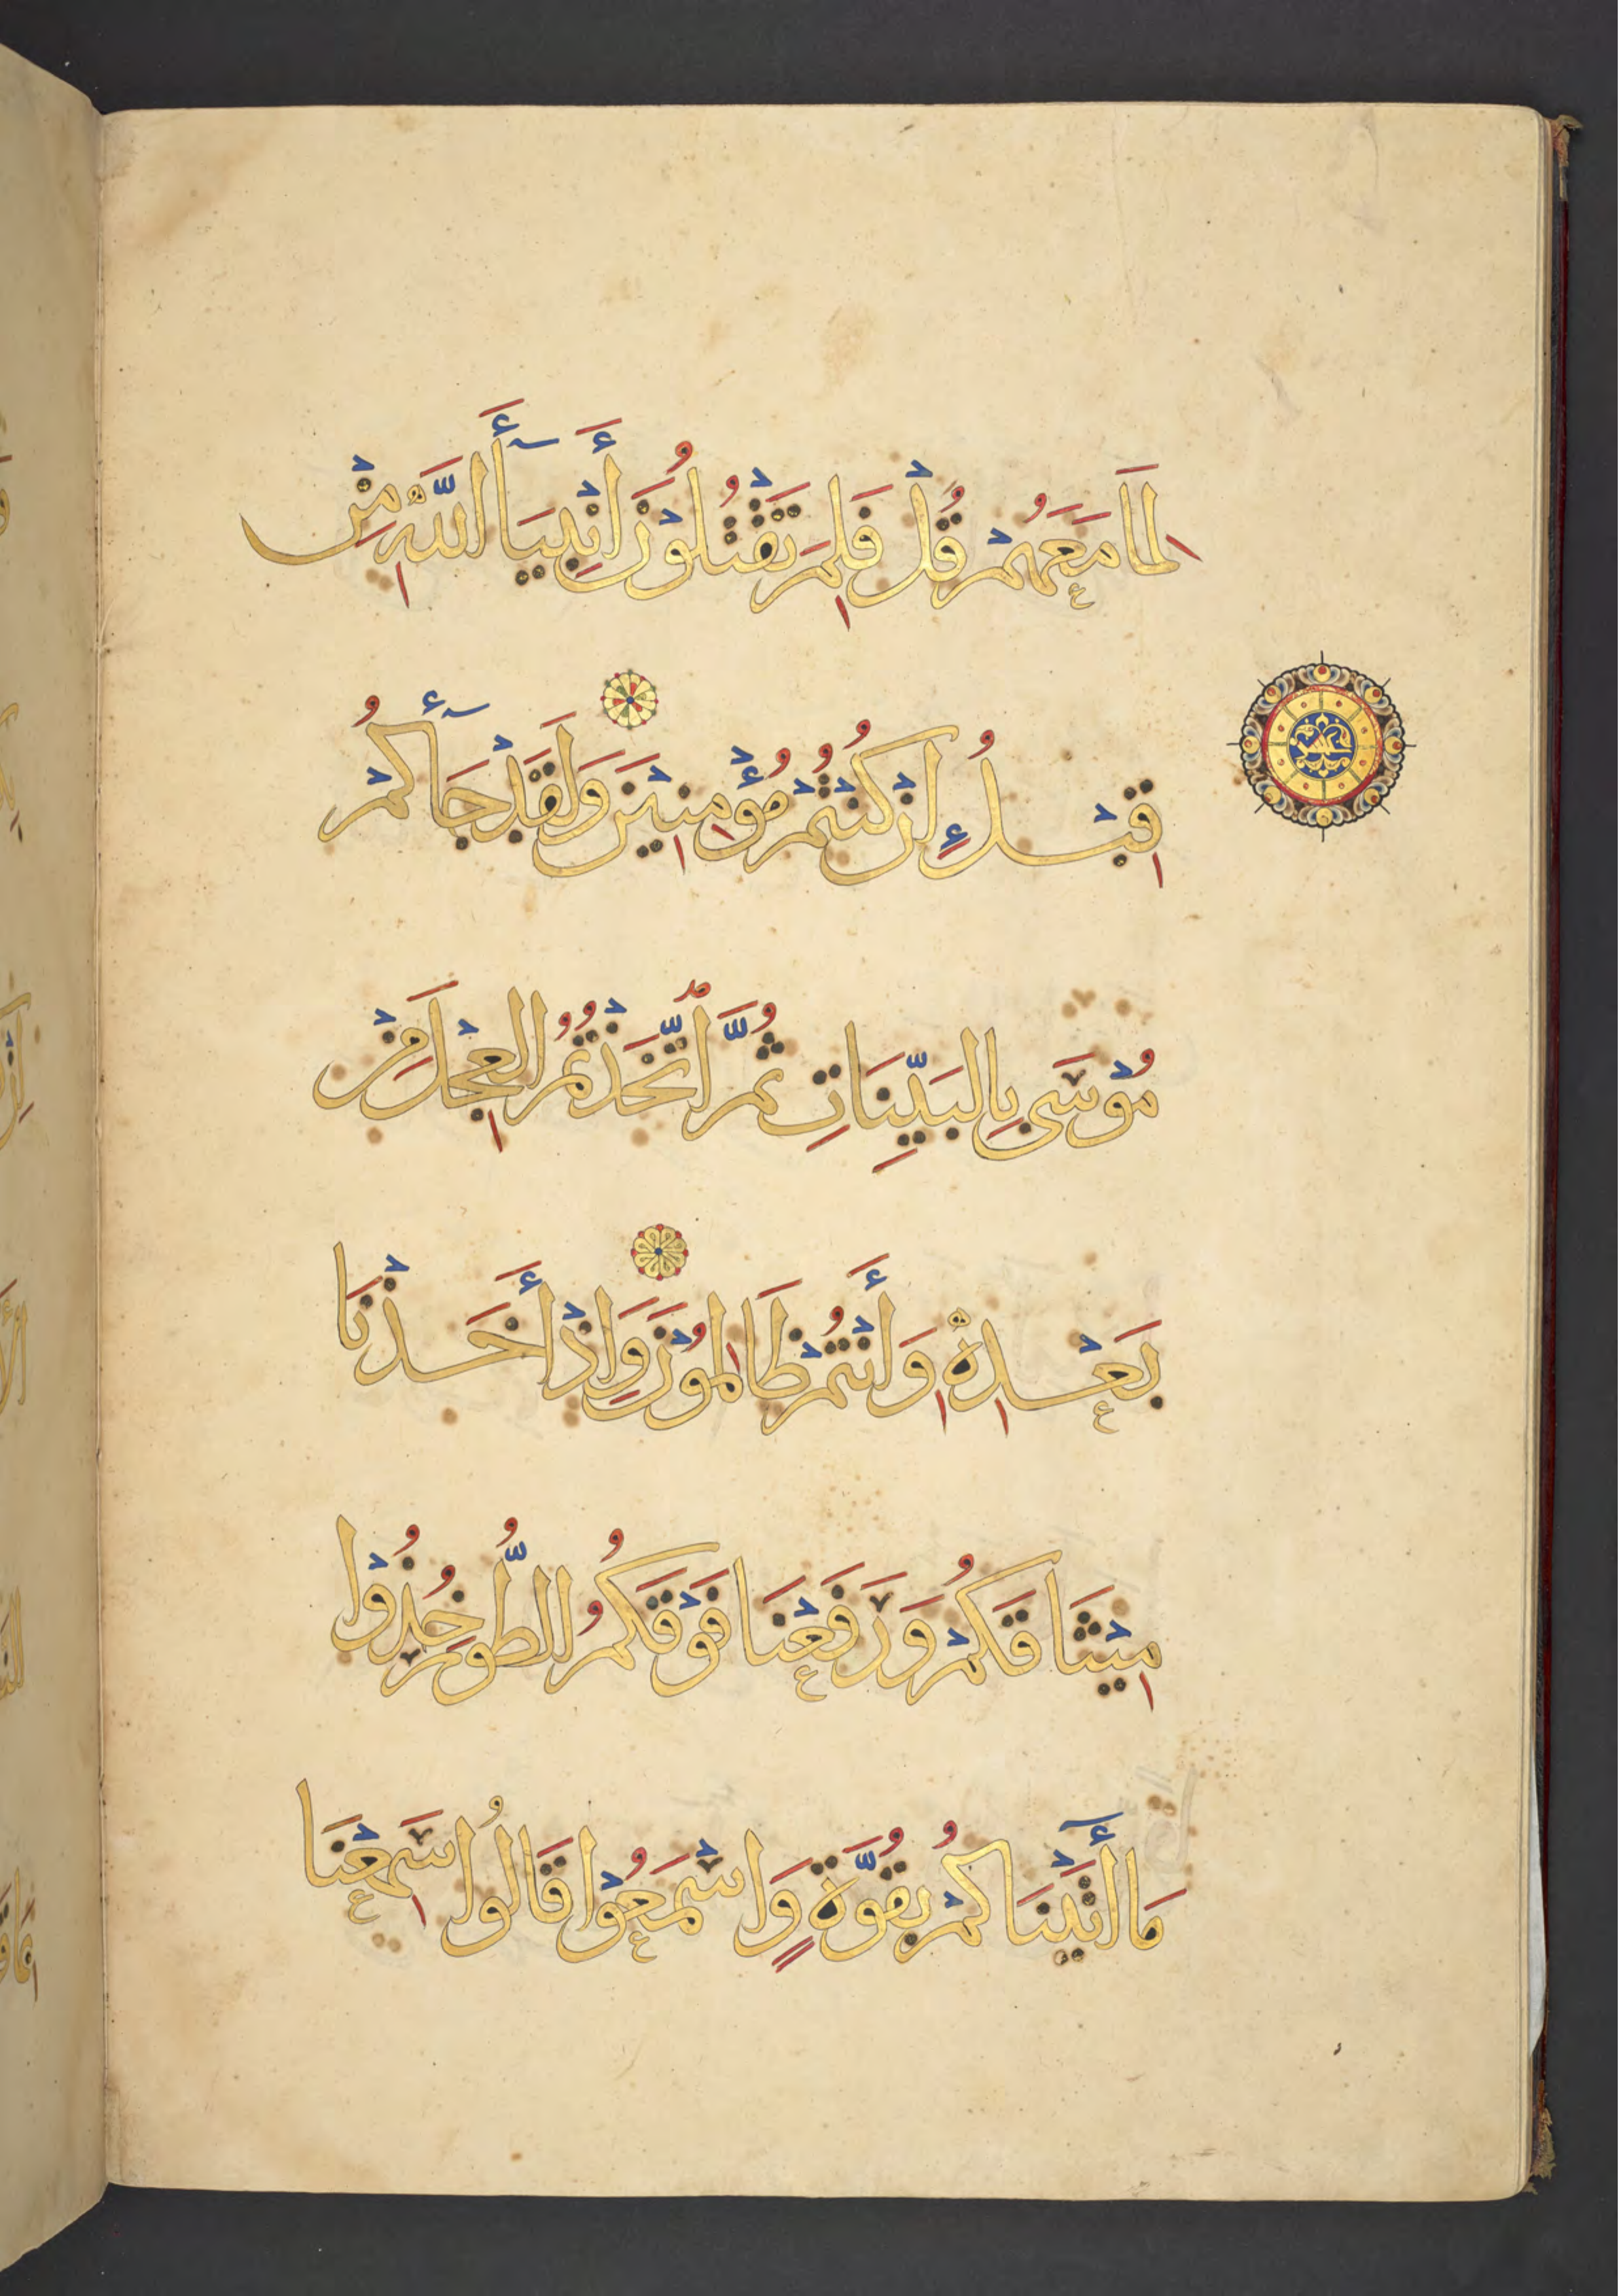 لِمَا مَعَهُمْ قُلْ فَلِمَ تَقْتُلُونَ أَنْبِيَآءَ اللَّهِ مِنْ
قَبْلُ إِنْ كُنْتُمْ مُؤْمِنِيْنَ وَلَقَدْ جَآءَكُمْ
مُوْسَى بِالبَيِّنَاتِ ثُمَّ اتَّخَذْتُمُ العِجْلَ مِنْ
بَعْدِهِ وَأَنْتُمْ ظَالِمُوْنَ وَإِذْ أَخَذْنَا
مِيْثَاقَكُمْ وَرَفَعْنَا فَوْقَكُمُ الطُّورَ خُذُوْا
مَا أَتَيْنَاكُمْ بِقُوَّةٍ وَاسْمَعُوْا قَالُوا سَمِعْنَا